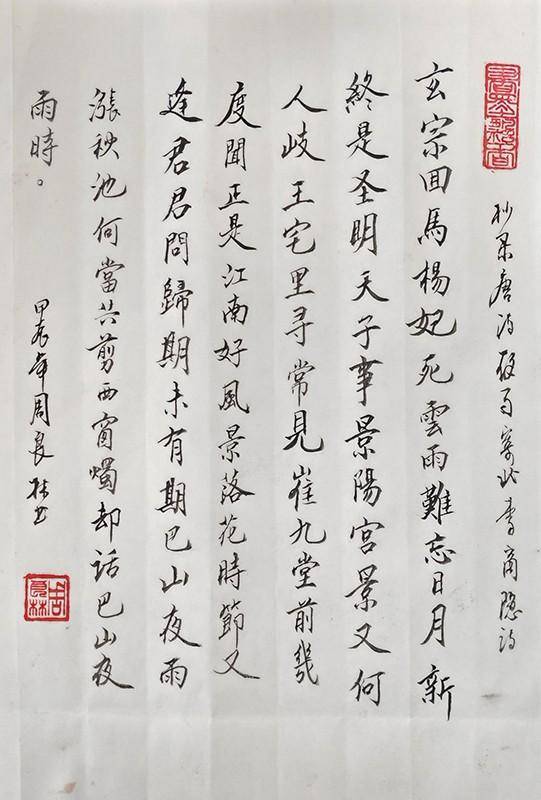 抄录唐诗数首寄北李商隐诗
玄宗回馬楊妃死雲雨難忘日月新
終是圣明天子事景陽宮景又何
人岐王宅里寻常見崔九堂前幾
度聞正是江南好風景落花時節又
逢君君問歸期未有期巴山夜雨
漲秧池何當共剪西窗燭却話巴山夜
雨時。
甲辰年周良林书
周良林